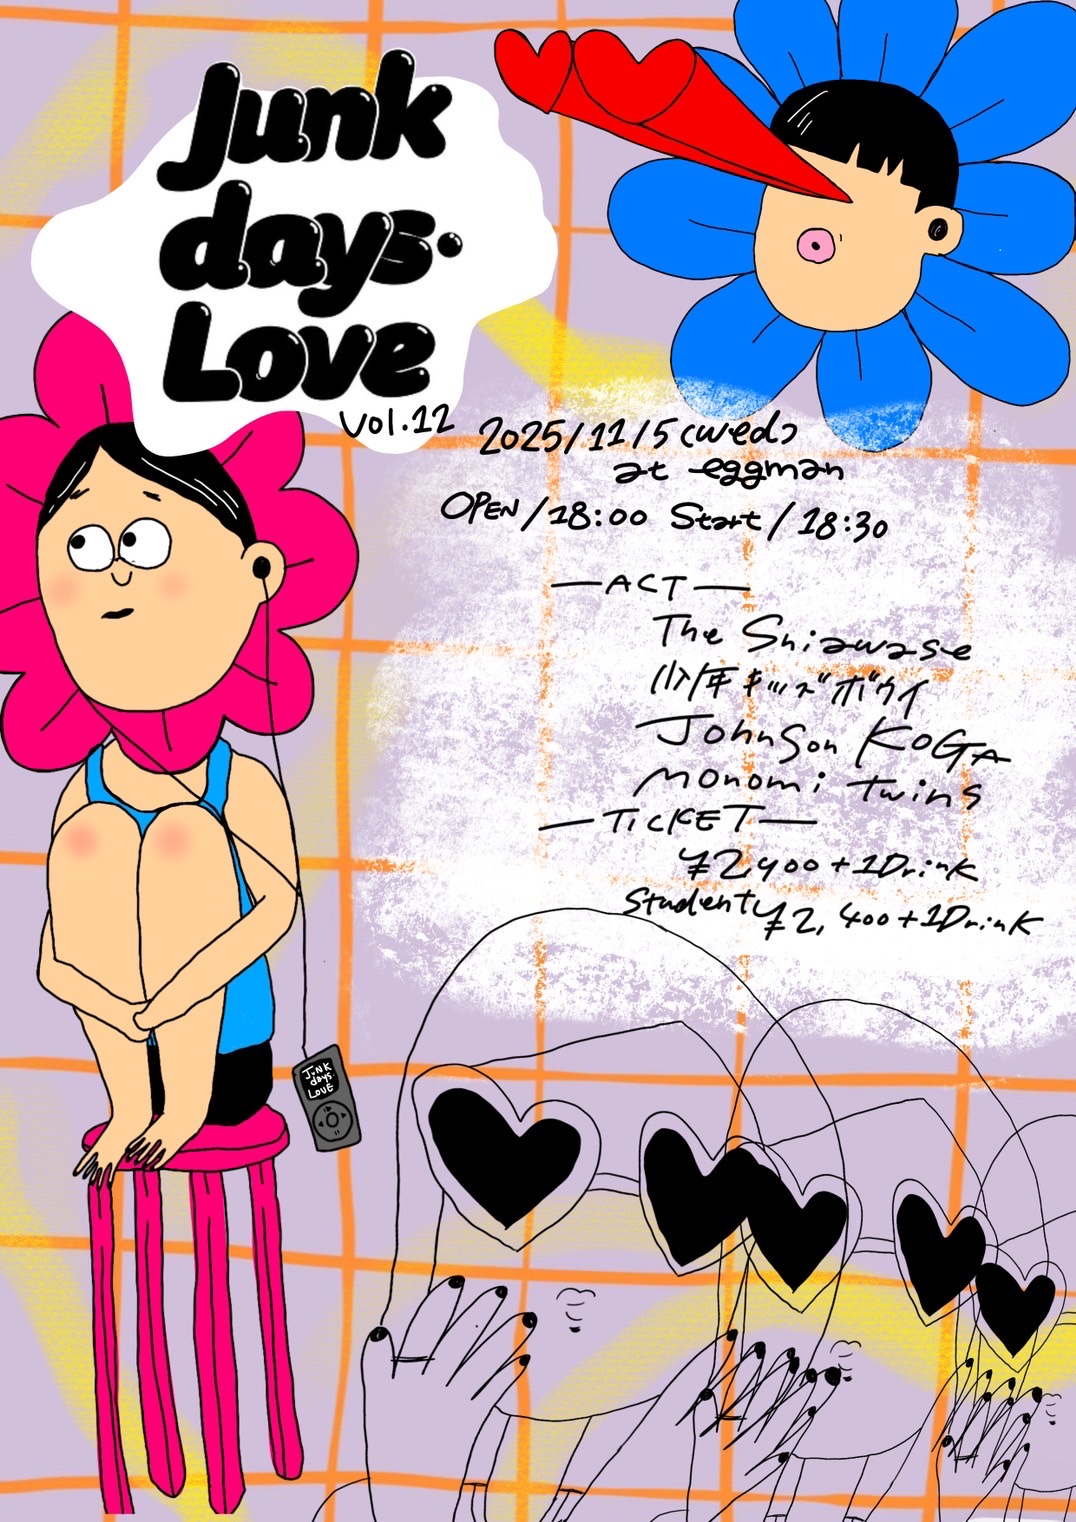 Junk
days.
Love
vol.12
2025/11/5(wed)
at eggman
OPEN/18:00 Start/18:30
—ACT—
The Shiawase
少年キッズボウイ
Johnson KOGA
Monomi twins
—TICKET—
¥2,900+1Drink
Student¥2,400+1Drink
JUNK
days.
LOVE